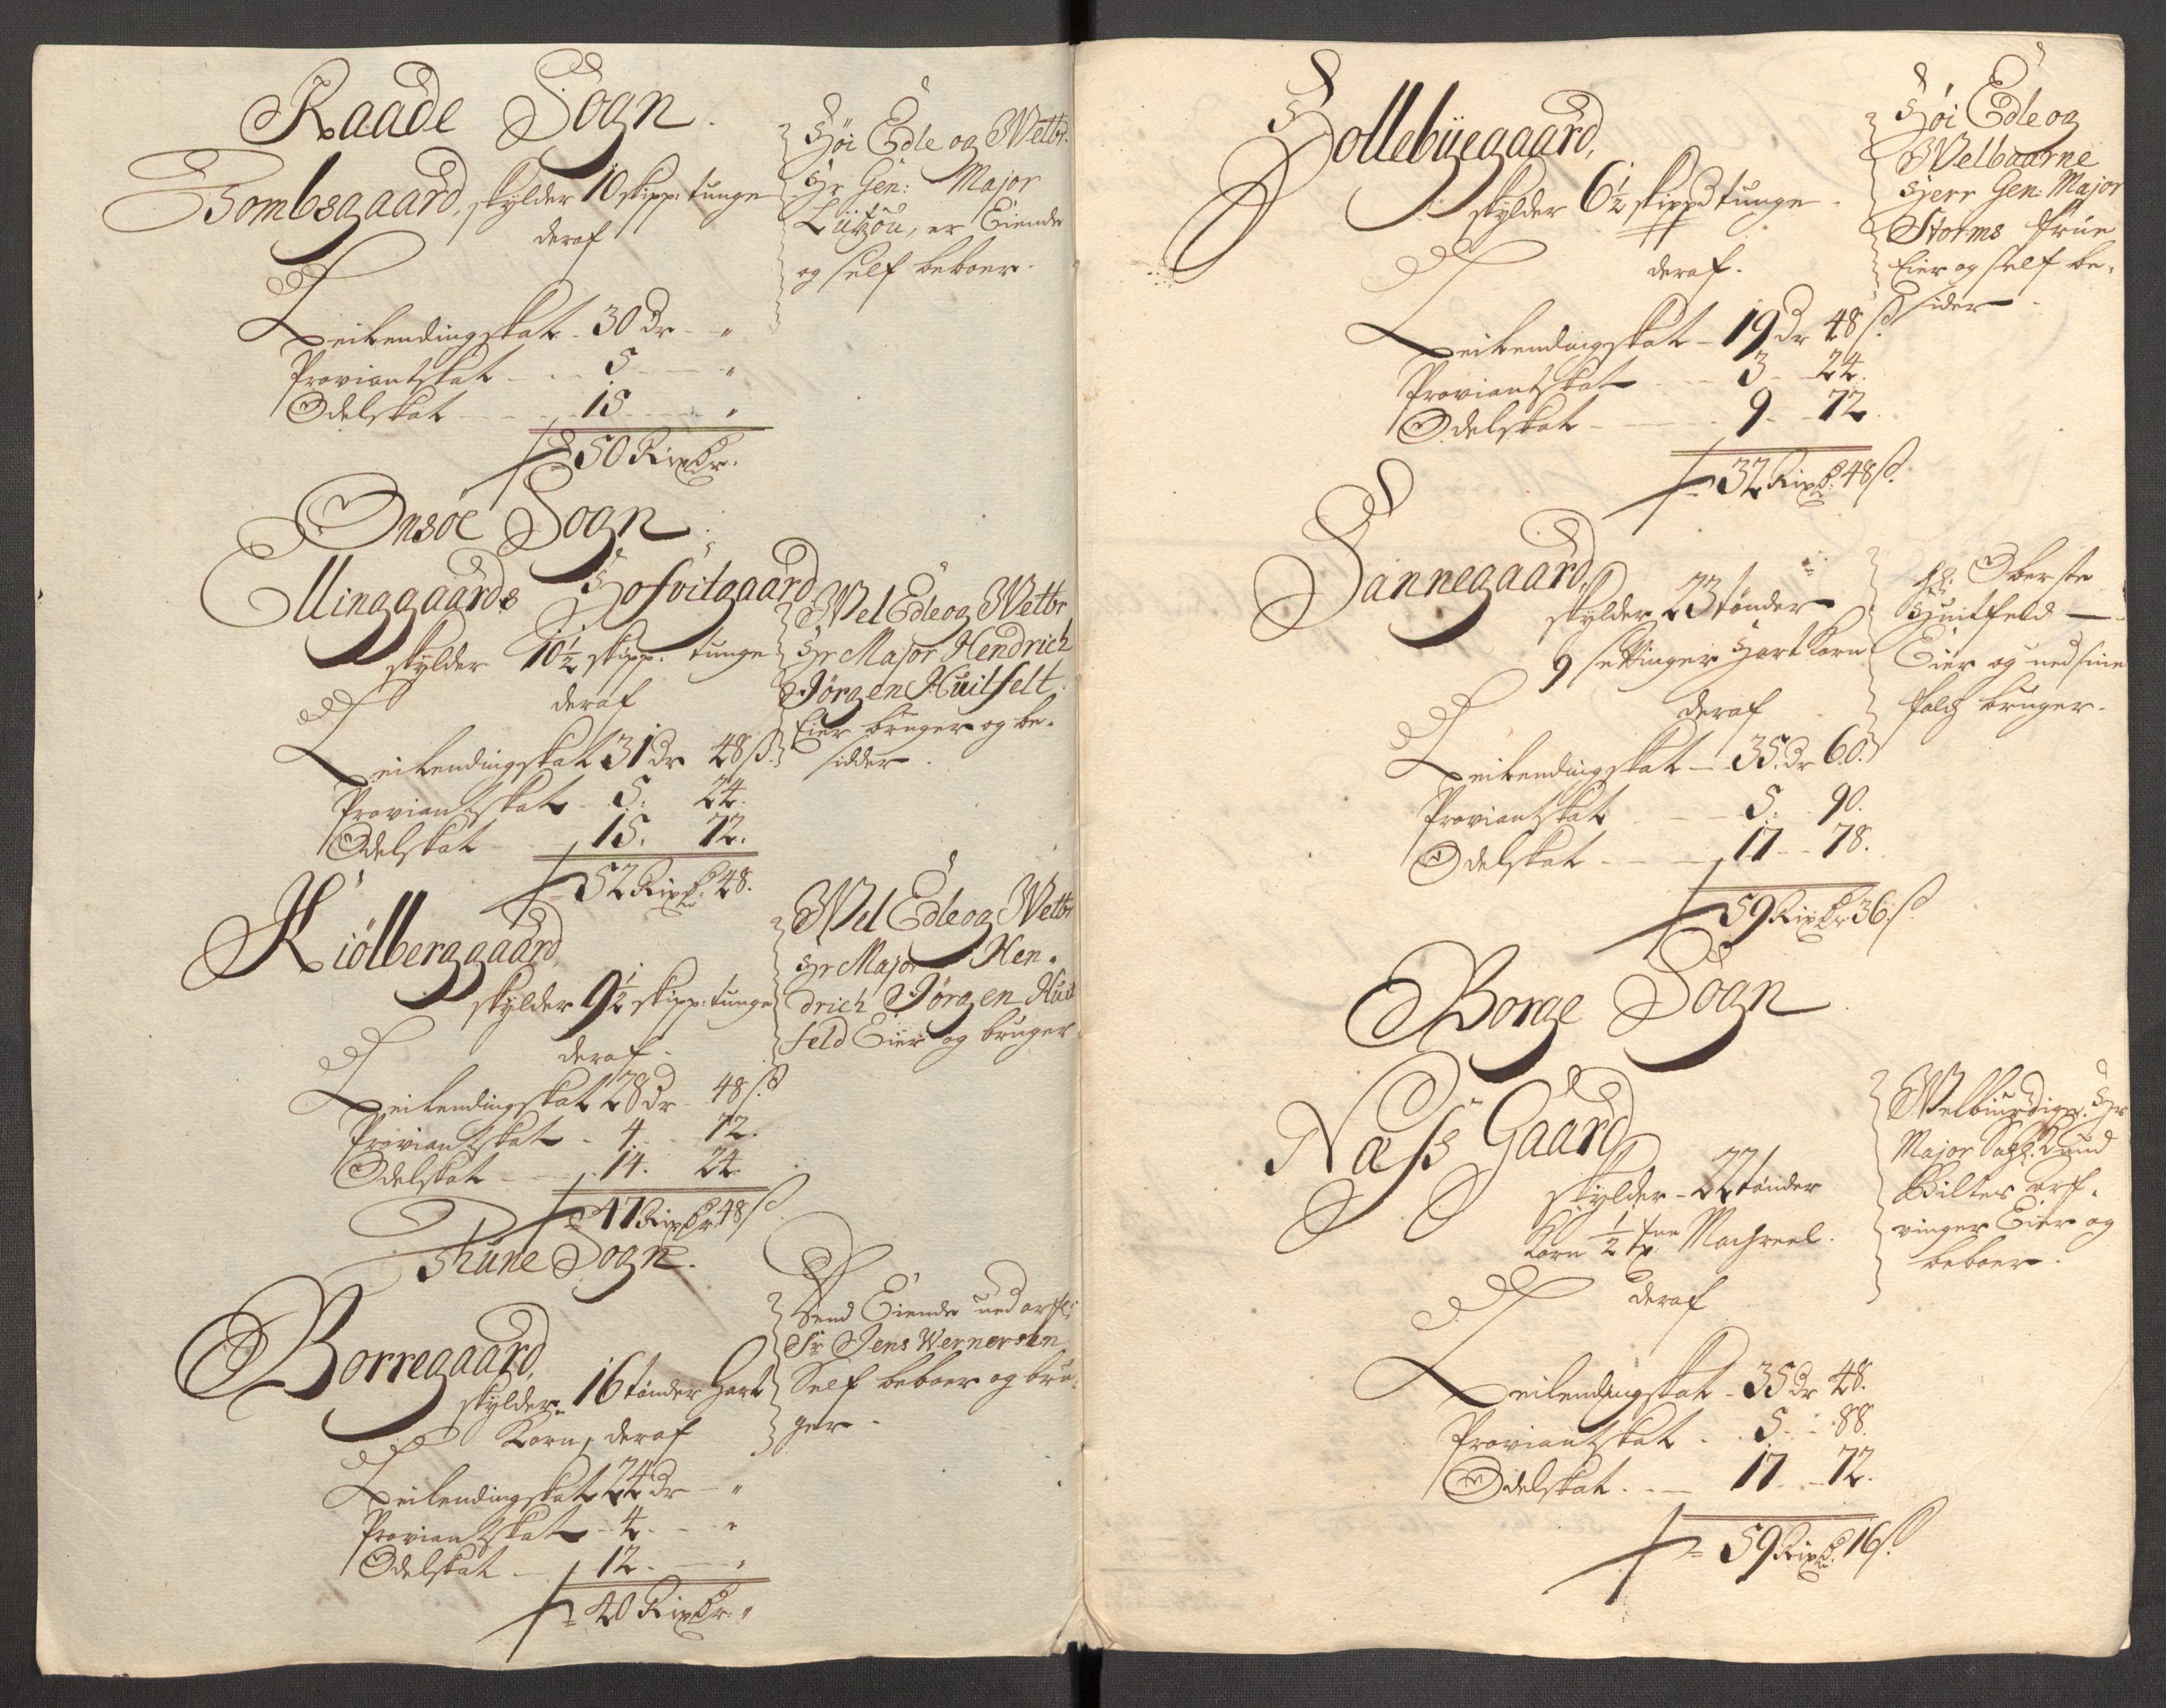 Raade Sogn.
Tombsgaard, skylder 10 skipp: tunge
deraf
Leilendingskat - 30 Dr - "
Proviantskat - - 5 - - "
Odelskat - - - 15 - - "
50 Rixdr.
Høi Edle og Welbr.
Hr Gen: Major
Lützou, er Eiende
og self beboer.
Onsøe Sogn.
Ellinggaards Hofvitgaard,
skylder 10½ skipp: tunge
deraf
Leilendingskat 31 Dr 48 ß.
Proviantskat - 5: 24.
Odelskat 15. 72.
52 Rixdr. 48.
Wel Edle og Welbr
Hr Major Hendrich
Jørgen Huitfelt
Eier bruger og be-
sidder.
Kiölberggaard,
skylder 9½ skipp: tunge
deraf.
Leilendingskat 28 Dr - 48 ß.
Proviantskat - 4. - 72.
Odelskat - - 14. 24.
47 Rixdr. 48 ß
Wel Edle og Welbr
Hr Major Hen-
drich Jørgen Huit
feld Eier og bruger
Thune Sogn.
Borregaard,
skylder 16 tønder Hart
Korn, deraf
Leilendingskat 24 Dr - "
Proviantskat - 4. - "
Odelskat - 12. - "
40 Rixdr. "
Sr Jens Wernersen
Self beboer og bru-
ger.
Hollebyegaard,
skylder 6½ skippd tunge.
deraf.
Leilendingskat - 19 Dr 48 ß.
Proviantskat - - 3 - 24.
Odelskat - - - 9 - 72.
32 Rixdr. 48 ß.
Høi Edle og
Welbaarne
Herr Gen: Major
Storms frue
Eier og self be-
sider.
Sannegaard,
skylder 23 tønder
9 settinger Hart Korn
deraf
Leilendingskat - 35. Dr 60.
Proviantskat - - 5. 90.
Odelskat - - - 17 - 78.
59 Rixdr 36 ß.
Hr: Oberste
Huitfeld -
Eier og
bruger.
Borge Sogn.
Næss Gaard
skylder - 22 tønder
Korn ½ tnn Machreel.
deraf
Leilendingskat - 35 Dr 48.
Proviantskat - - 5 - 88.
Odelskat. - - 17 - 72.
59 Rixdr. 16 ß.
Welbiurdige Hr
Major Sahl: Knud
Bildes arf-
vinger Eier og
beboer.